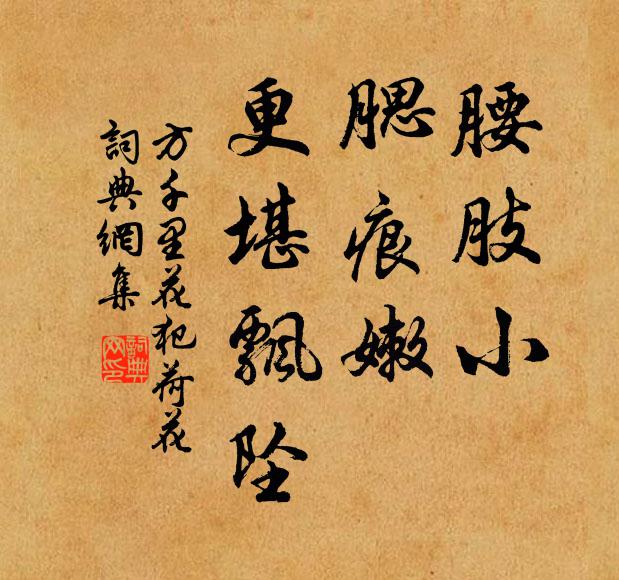 腰肢小
腮痕嫩
更堪飄坠
方千里花犯荷花
詞典網集
詞典
网印